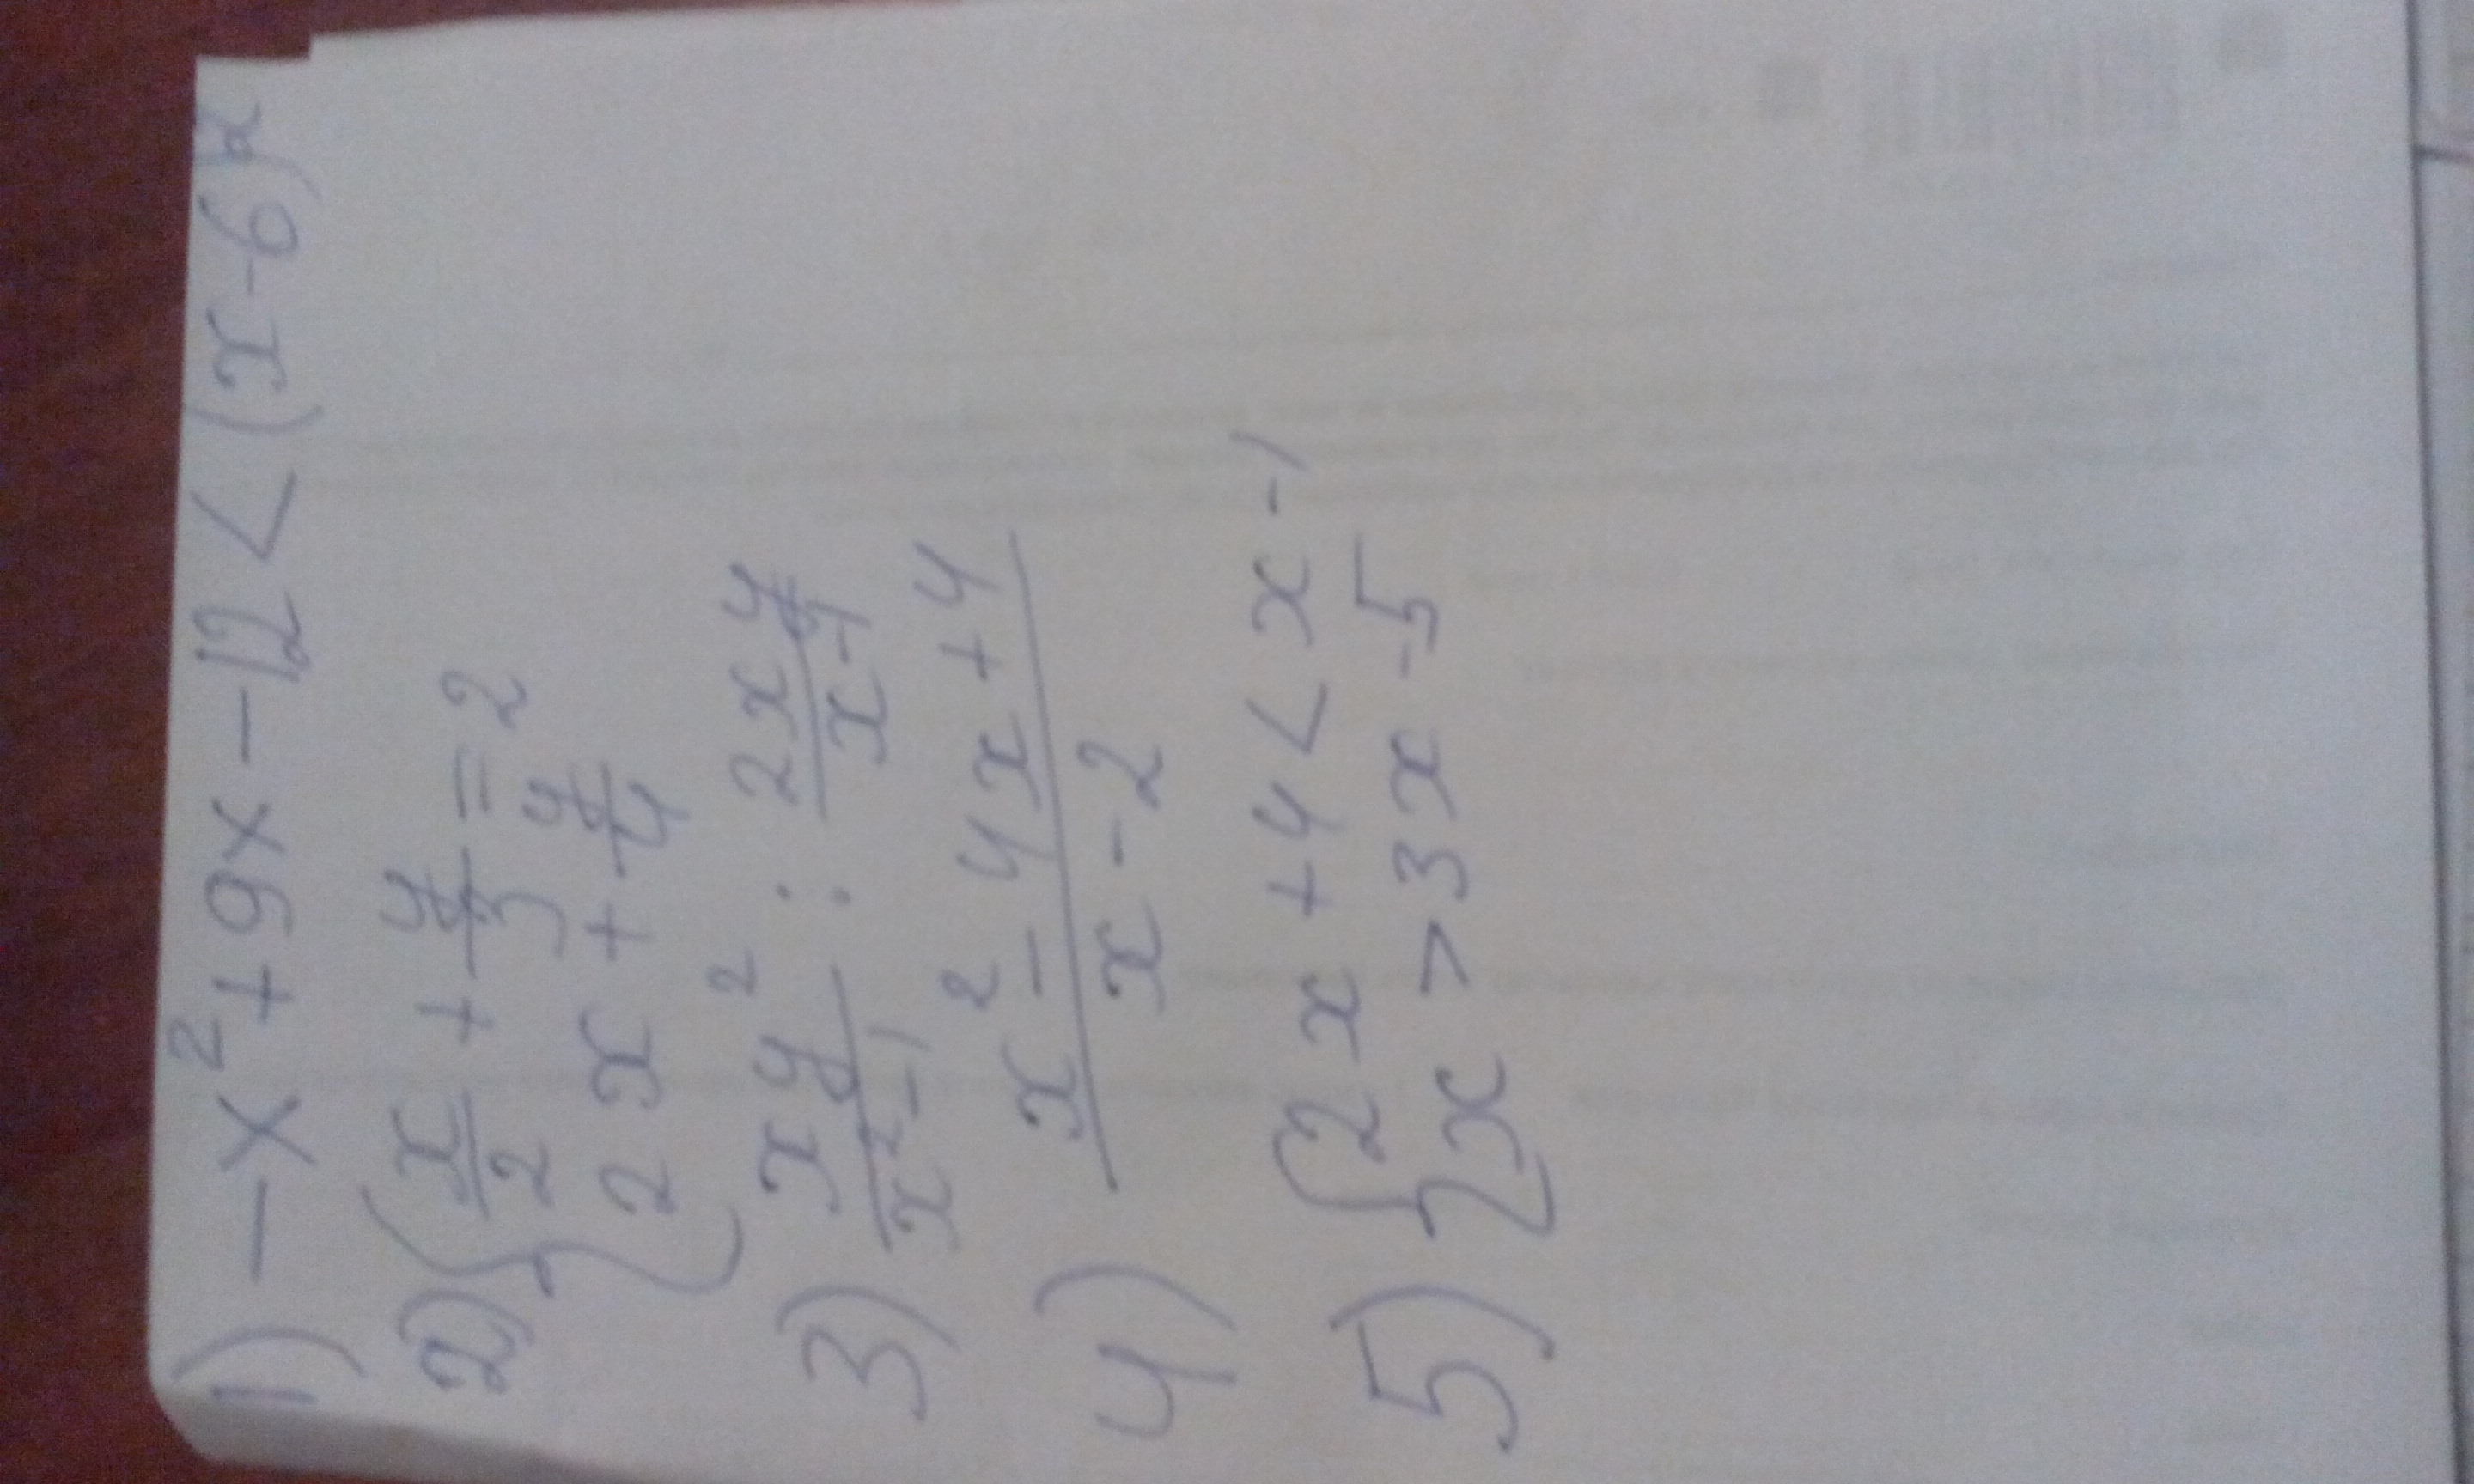 1) -x²+9x-12<(x-6)²
2) { x/2 + y/3 = 2
2x + y/4
3) xy²/x²-1 : 2xy/x-1
4) x²-4x+4/x-2
5) { 2x+4<x-1
2x>3x-5